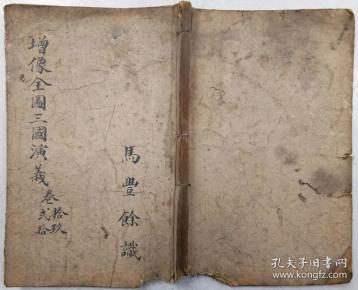 增像全圖三國演義
卷
拾玖
弍拾
馬豐餘識
孔夫子旧书网